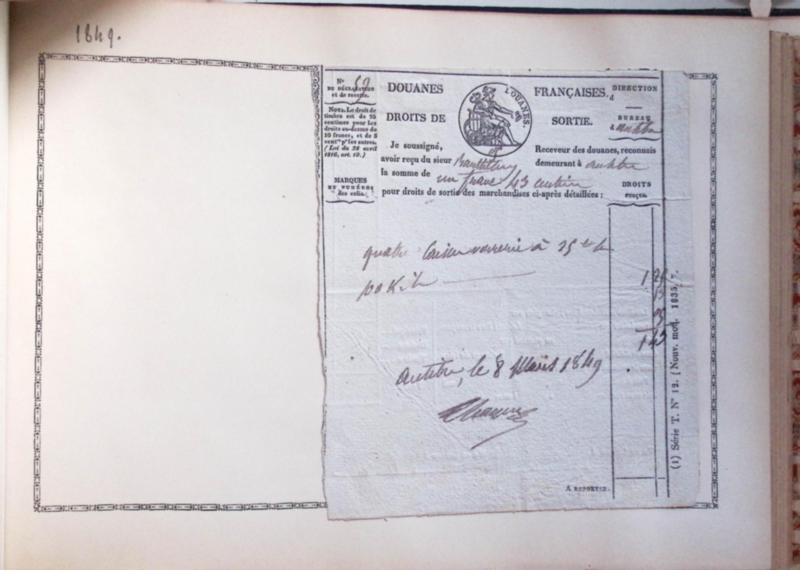 1849.
Nº 52
DE DÉCLARATION
et de recette.
DOUANES FRANÇAISES.
DOUANES.
DIRECTION
d
NOTA. Le droit de
timbre est de 25
centimes pour les
droits au-dessus de
10 francs, et de 5
cent.es p.r les autres.
(Loi du 28 avril
1816, art. 19.)
DROITS DE SORTIE.
BUREAU
d'antibe
Je soussigné, Receveur des douanes, reconnais
avoir reçu du sieur demeurant à antibe
la somme de un franc 43 centim
MARQUES
ET NUMÉROS
des colis.
DROITS
perçus.
pour droits de sortie des marchandises ci-après détaillées :
quatre caisses verrerie à 25
1
43
Antibe, le 8 Mars 1849
A REPORTER.
(1) Série T. Nº 12. (Nouv. mod. 1835.) 7.